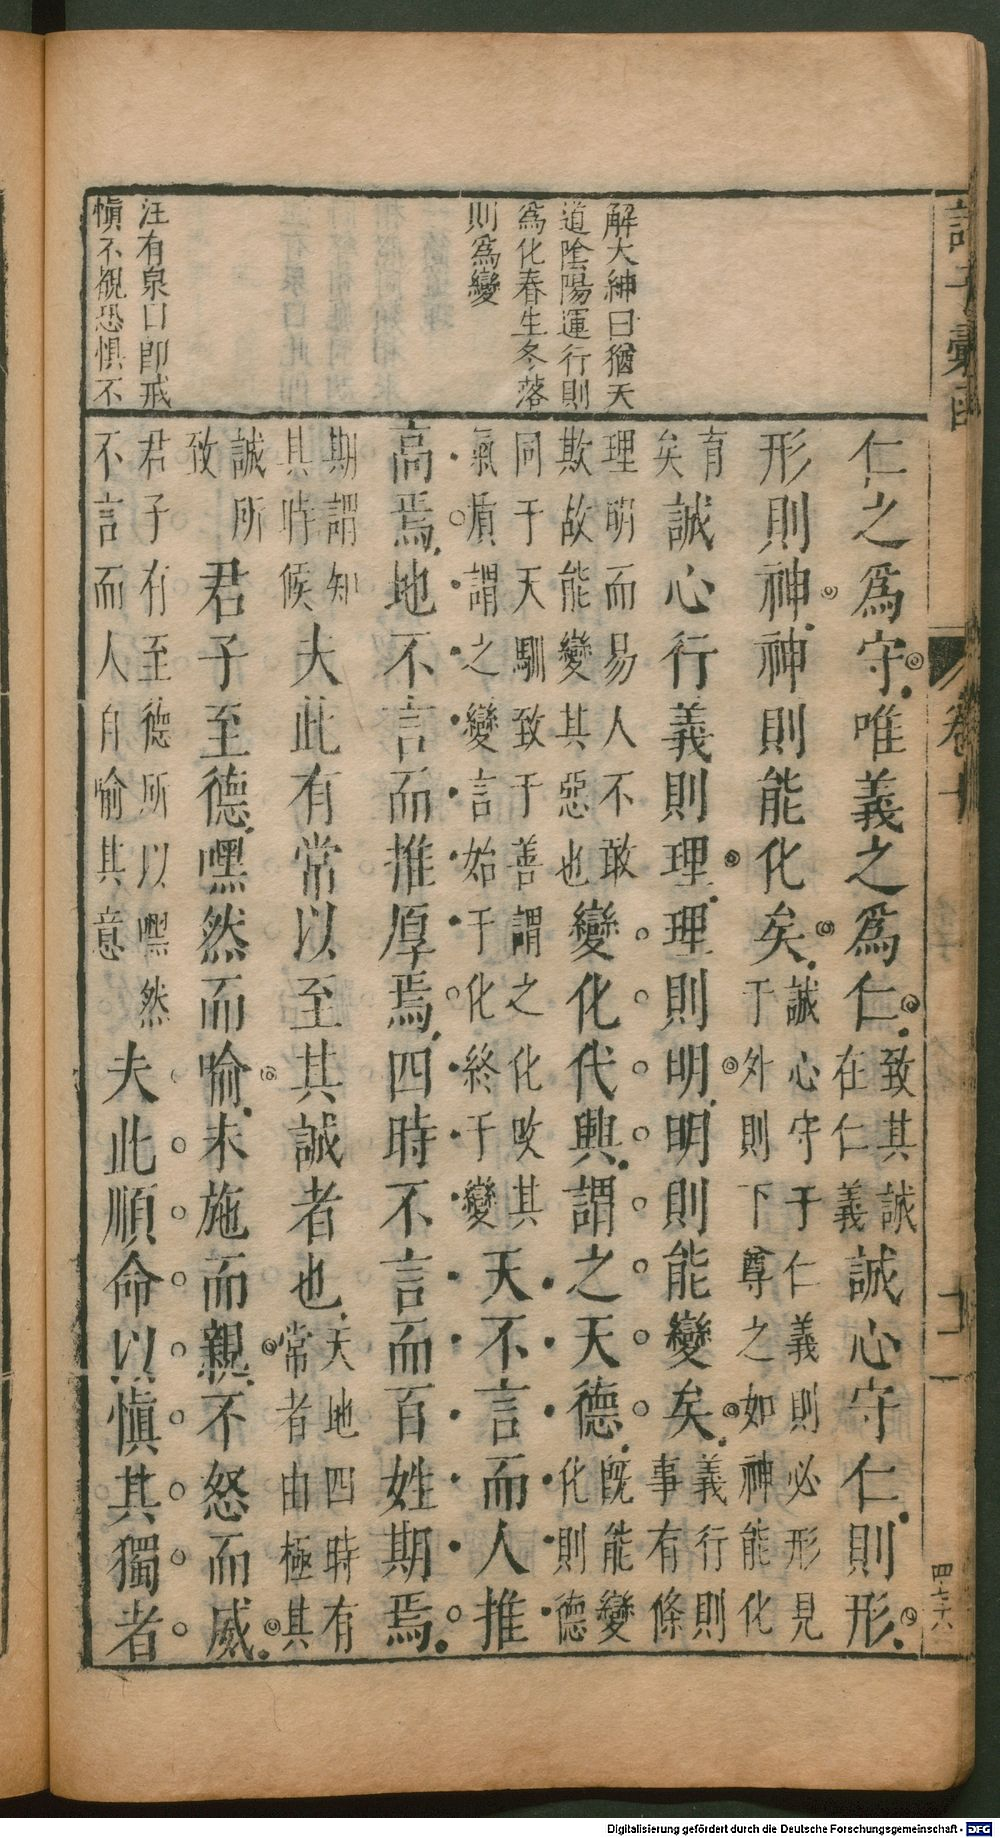 解大紳曰猶天
道陰陽運行則
為化春生冬落
則為變
汪有泉曰即戒
慎不覩恐懼不
仁之為守唯義之為仁致其誠在仁義誠心守仁則形
形則神神則能化矣誠心守于仁義則必形見于外則下尊之如神能化
矣有誠心行義則理理則明明則能變矣義行則事有條
理明而易人不敢欺故能變其惡也變化代興謂之天德既能變化則德
同于天馴致于善謂之化改其氣質謂之變言始于化終于變天不言而人推
高焉地不言而推厚焉四時不言而百姓期焉
期謂知其時候夫此有常以至其誠者也天地四時有常者由極其
誠所致君子至德嘿然而喻未施而親不怒而威
君子有至德所以嘿然不言而人自喻其意夫此順命以慎其獨者
卷十
十一
四七六
Digitalisierung gefördert durch die Deutsche Forschungsgemeinschaft - DFG